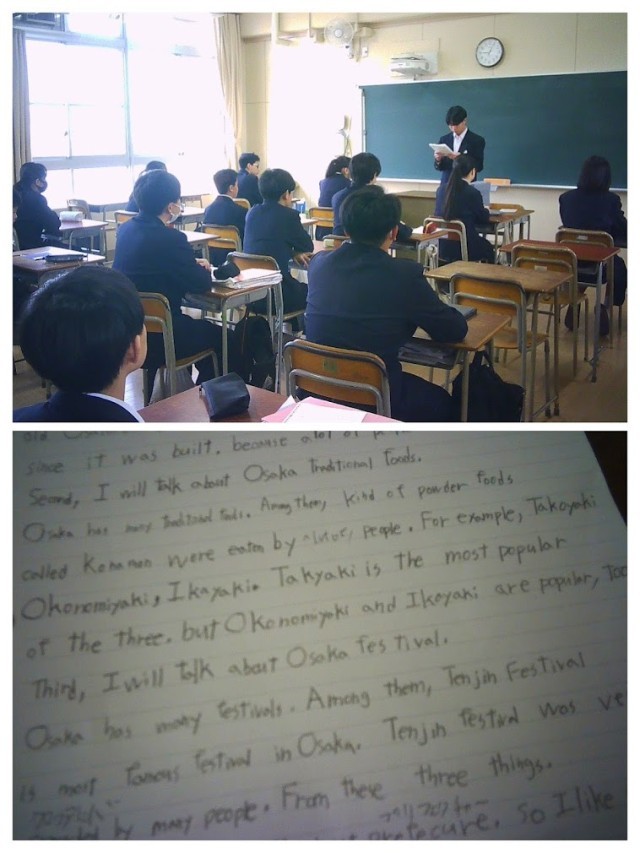 since it was built. because a lot of
Second, I will talk about Osaka Traditional Foods.
Osaka has many Traditional foods. Among them, kind of powder foods
called Konamon were eaten by people. For example, Takoyaki
Okonomiyaki, Ikayaki. Takyaki is the most popular
of the three. but Okonomiyaki and Ikayaki are popular, Too
Third, I will talk about Osaka festival.
Osaka has many festivals. Among them, Tenjin Festival
is most famous festival in Osaka. Tenjin festival was ve
by many people. From these three things.
so I like